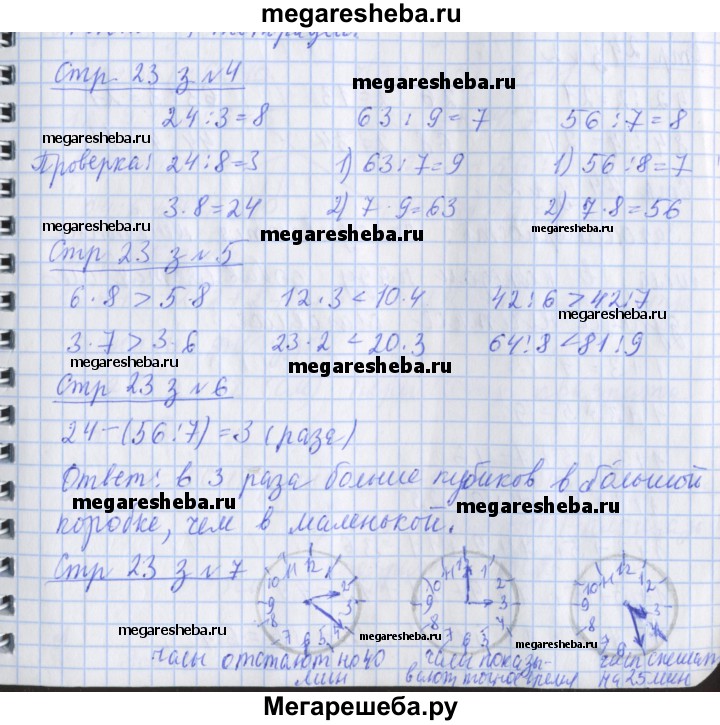 megaresheba.ru
Стр 23 з №4
megaresheba.ru
24:3=8 63:9=7 56:7=8
megaresheba.ru
Проверка: 24:8=3 1) 63:7=9 1) 56:8=7
megaresheba.ru
3·8=24 2) 7·9=63 2) 7·8=56
megaresheba.ru
megaresheba.ru
Стр 23 з №5
6·8>5·8 12·3<10·4 42:6>42:7
megaresheba.ru
3·7>3·6 23·2<20·3 64:8<81:9
megaresheba.ru
megaresheba.ru
Стр 23 з №6
24-(56:7)=3 (раза)
Ответ: в 3 раза больше кубиков в большой
megaresheba.ru
megaresheba.ru
коробке, чем в маленькой.
Стр 23 з №7
11 12 1 2 3 4 5 6 7 8 9 10
megaresheba.ru
megaresheba.ru
megaresheba.ru
часы отстают на 40 мин
часы показывают точное время
часы спешат на 25 мин
Мегарешеба.ру